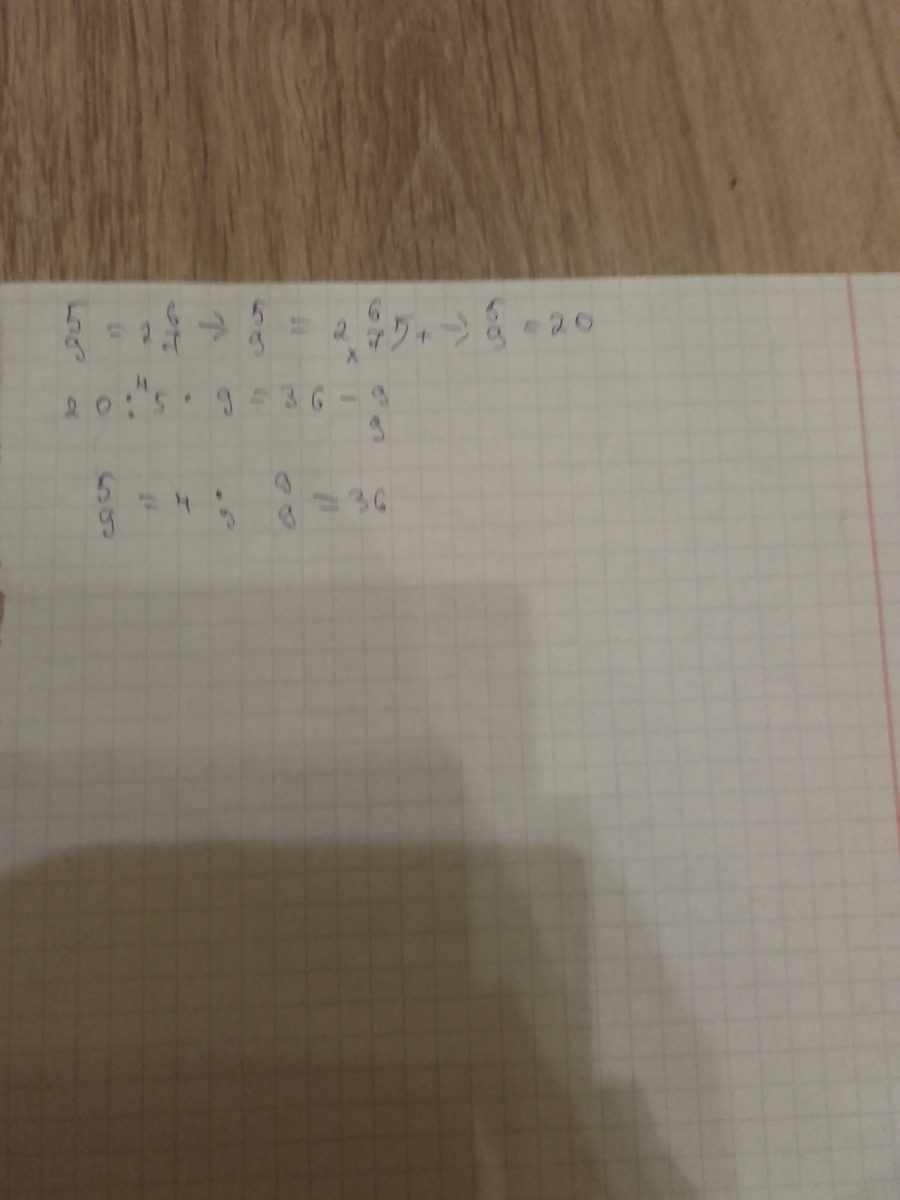 5/9 = 2 6/7 → 5/9 = 2 × 6/7 + → 5/9 = 20
20 : 5 · 9 = 36 - 9/9
5/9 = 4 : 9 9/9 = 36